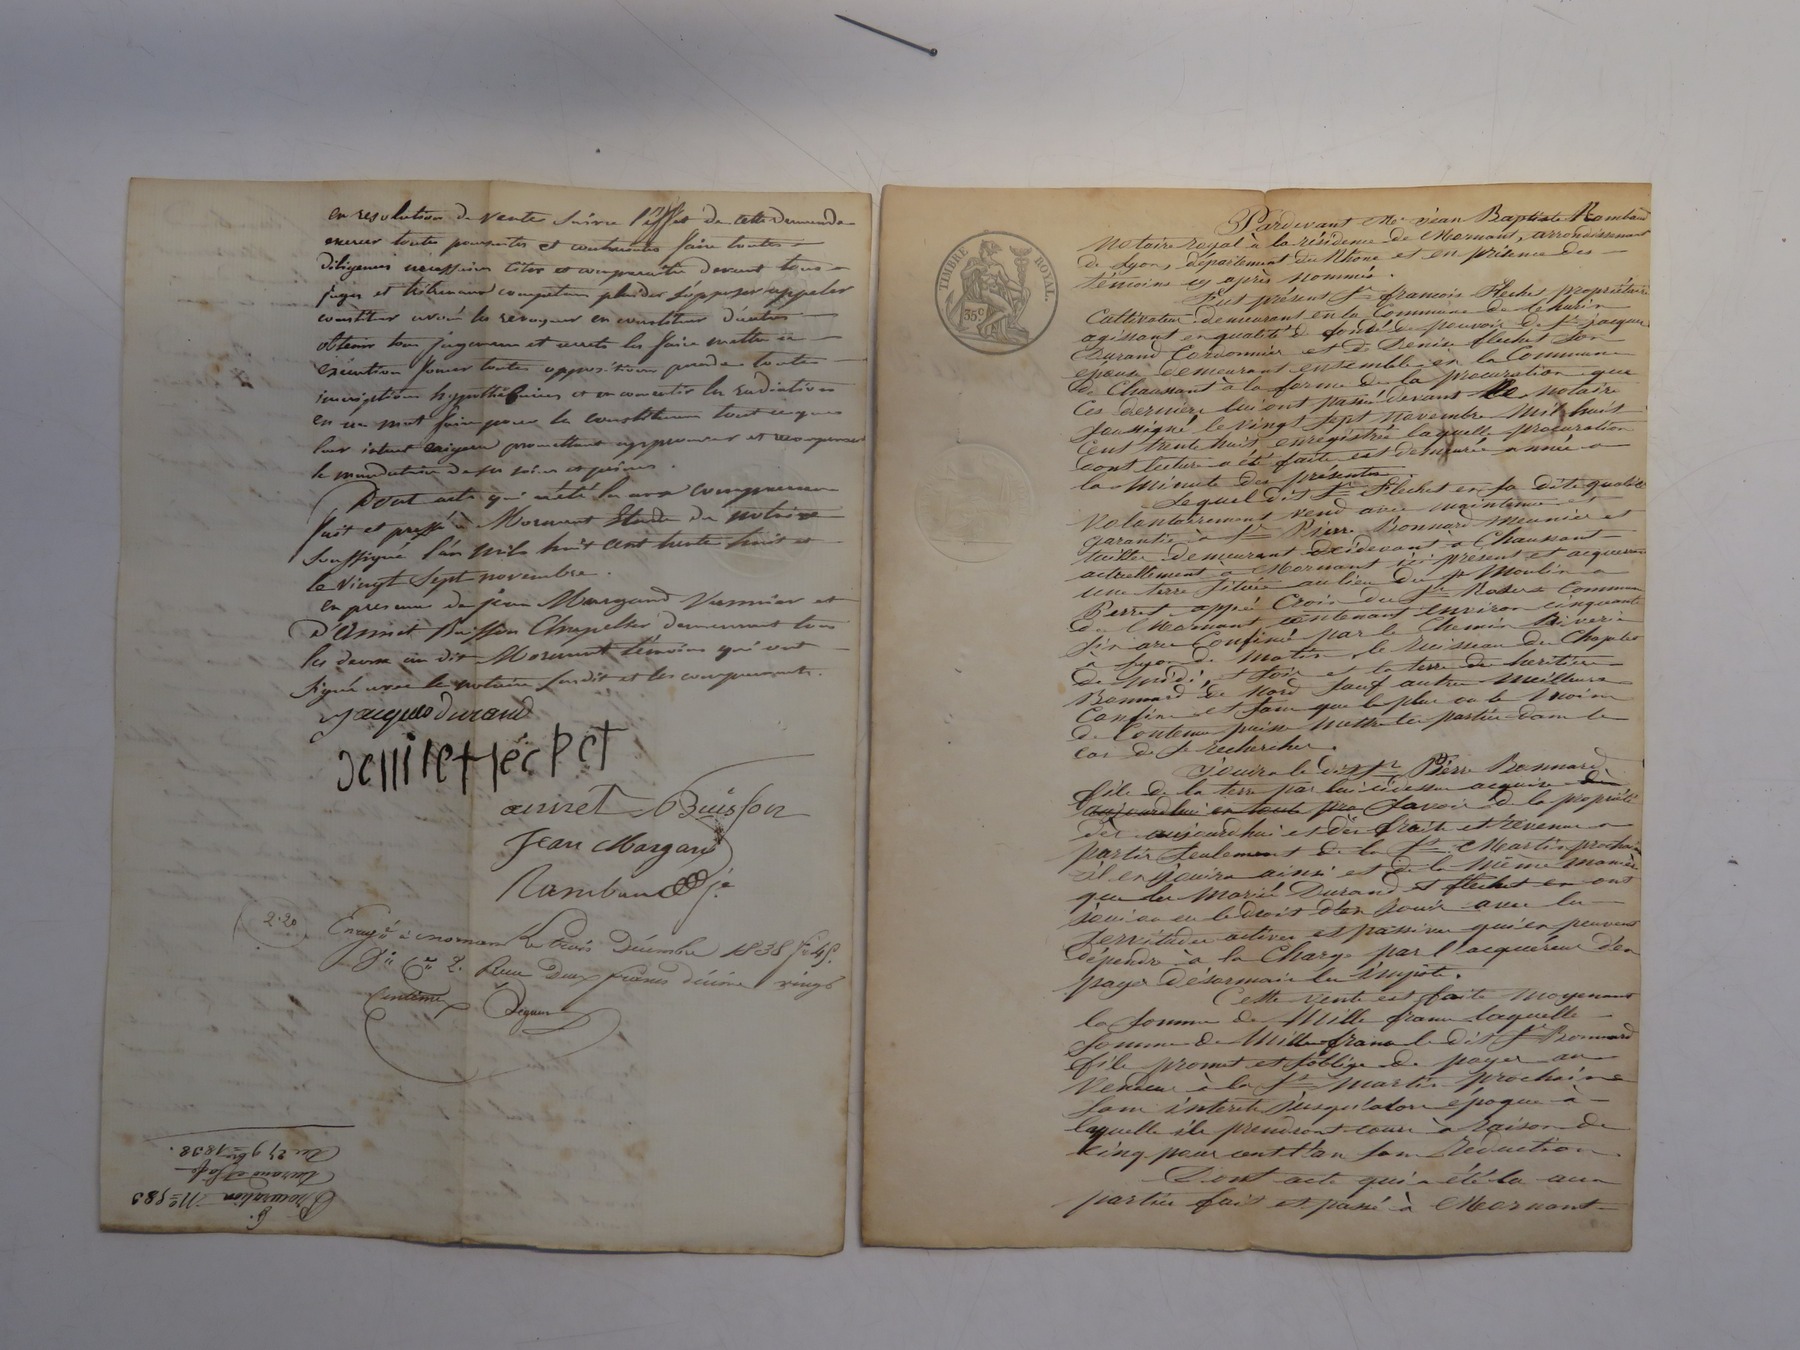 en résolution de ventes suivre l'effet de cette demande
exercer toutes poursuites et contraintes faire toutes
diligences nécessaires citer et comparaitre devant tous
juges et tribunaux compétens plaider s'opposer appeler
constituer avoué les révoquer en constituer d'autres
obtenir tous jugemens et arrets les faire mettre à
exécution former toutes oppositions prendre toutes
inscriptions hypothécaires et en consentir les radiations
en un mot faire pour les constituans tout ce que
leur intéret exigera promettant approuver et récompenser
le mandataire de ses soins et peines.
Dont acte qui a été lu aux comparans
fait et passé à Mornant Etude du notaire
soussigné l'an mil huit cent trente huit et
le vingt sept novembre.
en presence de jean Margand Vannier et
d'Annet Buisson Chapelier demeurant tous
les deux au dit Mornant témoins qui ont
signé avec le notaire susdit et les comparants.
jacques durand
denise flechet
annet Buisson
Jean Margand
Rambaud
2.20
Enregé à mornant le trois Décembre 1838 f° 45.
Reçu Deux francs décime vingt
Centimes
Procuration N° 983
Durand et sa fe
Du 27 9bre 1838.
TIMBRE ROYAL.
35c
Pardevant Me jean Baptiste Rambaud
Notaire royal à la résidence de Mornant, arrondissement
de Lyon, département du Rhône et en présence des
témoins cy après nommés.
Fut présent Sr francois Flechet propriétaire
Cultivateur demeurant en la Commune de
agissant en qualité de fondé de pouvoir de Sr jacques
Durand Cordonnier et de Denise flechet son
épouse demeurant ensemble en la Commune
de Chaussant à la forme de la procuration que
ces derniers lui ont passé devant le notaire
soussigné le vingt sept novembre mil huit
cent trente huit enrégistrée laquelle procuration
dont lecture a été faite est demeurée annéxée à
la Minute des présentes.
Lequel dit Sr Flechet en sa dite qualité
Volontairement vend avec maintenue et
garantie à Sr Pierre Bonnard Meunier et
demeurant cidevant à Chaussant
actuellement à Mornant ici présent et acquereur
une terre située au lieu du Moulin à
Perret appelé Croix du Commune
de Mornant contenant environ cinquante
six ares Confinée par le Chemin de Riverie
à Lyon de matin, le ruisseau de
de midi, et soir et la terre des héritiers
Bonnard de Nord sauf autres meilleurs
Confins et sans que le plus ou le moins
de Contenu puisse mettre les parties dans le
cas de se rechercher.
jouira le dit Sr Pierre Bonnard
fils de la terre par lui cidessus acquise
aujourdhui en toute pro savoir de la propriété
dès aujourdhui et des fruits et revenus à
partir seulement de la St Martin prochaine
il en jouira ainsi et de la même manière
que les Mariés Durand et flechet en ont
joui ou eu le droit d'en jouir avec les
servitudes actives et passives qui en peuvent
dépendre à la Charge par l'acquéreur d'en
payer désormais les impôts.
Cette vente est faite moyenant
la somme de Mille francs laquelle
somme de Mille francs le dit Sr Bonnard
fils promet et s'oblige de payer au
Vendeur à la St Martin prochaine
sans intérets jusqu'alors époque à
laquelle ils prendront cours à raison de
cinq pour cent l'an sans réduction
Dont acte qui a été lu aux
parties fait et passé à Mornant